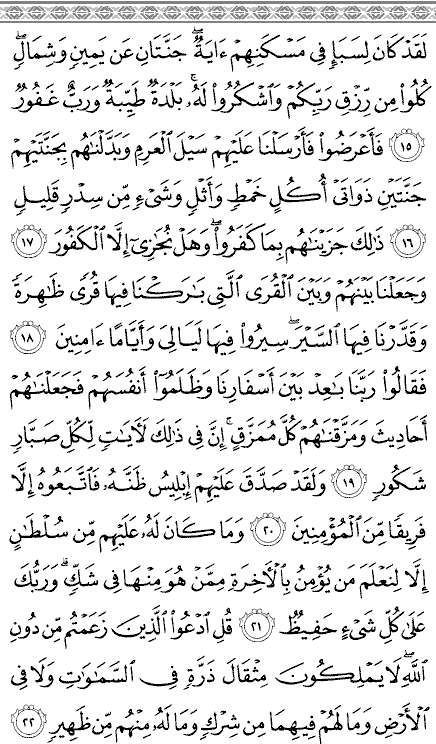 لَقَدْ كَانَ لِسَبَإٍ فِى مَسْكَنِهِمْ ءَايَةٌ ۖ جَنَّتَانِ عَن يَمِينٍ وَشِمَالٍ ۖ
كُلُوا۟ مِن رِّزْقِ رَبِّكُمْ وَٱشْكُرُوا۟ لَهُۥ ۚ بَلْدَةٌ طَيِّبَةٌ وَرَبٌّ غَفُورٌ
١٥ فَأَعْرَضُوا۟ فَأَرْسَلْنَا عَلَيْهِمْ سَيْلَ ٱلْعَرِمِ وَبَدَّلْنَٰهُم بِجَنَّتَيْهِمْ
جَنَّتَيْنِ ذَوَاتَىْ أُكُلٍ خَمْطٍ وَأَثْلٍ وَشَىْءٍ مِّن سِدْرٍ قَلِيلٍ
١٦ ذَٰلِكَ جَزَيْنَٰهُم بِمَا كَفَرُوا۟ ۖ وَهَلْ نُجَٰزِىٓ إِلَّا ٱلْكَفُورَ ١٧
وَجَعَلْنَا بَيْنَهُمْ وَبَيْنَ ٱلْقُرَى ٱلَّتِى بَٰرَكْنَا فِيهَا قُرًى ظَٰهِرَةً
وَقَدَّرْنَا فِيهَا ٱلسَّيْرَ ۖ سِيرُوا۟ فِيهَا لَيَالِىَ وَأَيَّامًا ءَامِنِينَ ١٨
فَقَالُوا۟ رَبَّنَا بَٰعِدْ بَيْنَ أَسْفَارِنَا وَظَلَمُوٓا۟ أَنفُسَهُمْ فَجَعَلْنَٰهُمْ
أَحَادِيثَ وَمَزَّقْنَٰهُمْ كُلَّ مُمَزَّقٍ ۚ إِنَّ فِى ذَٰلِكَ لَءَايَٰتٍ لِّكُلِّ صَبَّارٍ
شَكُورٍ ١٩ وَلَقَدْ صَدَّقَ عَلَيْهِمْ إِبْلِيسُ ظَنَّهُۥ فَٱتَّبَعُوهُ إِلَّا
فَرِيقًا مِّنَ ٱلْمُؤْمِنِينَ ٢٠ وَمَا كَانَ لَهُۥ عَلَيْهِم مِّن سُلْطَٰنٍ
إِلَّا لِنَعْلَمَ مَن يُؤْمِنُ بِٱلْءَاخِرَةِ مِمَّنْ هُوَ مِنْهَا فِى شَكٍّ ۗ وَرَبُّكَ
عَلَىٰ كُلِّ شَىْءٍ حَفِيظٌ ٢١ قُلِ ٱدْعُوا۟ ٱلَّذِينَ زَعَمْتُم مِّن دُونِ
ٱللَّهِ ۖ لَا يَمْلِكُونَ مِثْقَالَ ذَرَّةٍ فِى ٱلسَّمَٰوَٰتِ وَلَا فِى
ٱلْأَرْضِ وَمَا لَهُمْ فِيهِمَا مِن شِرْكٍ وَمَا لَهُۥ مِنْهُم مِّن ظَهِيرٍ ٢٢